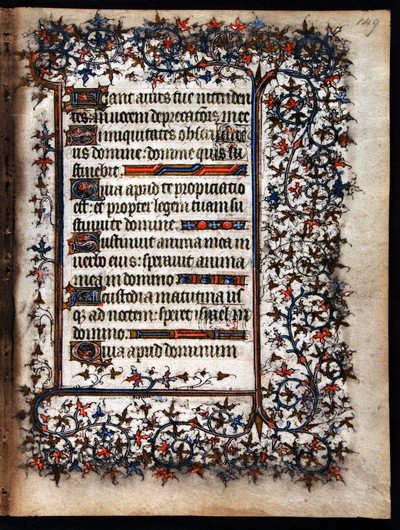 149
Fiant aures tue intenden
tes: in vocem deprecationis mee
Si iniquitates observaveris
domine: domine quis su
stinebit.
Quia apud te propiciatio
est: et propter legem tuam su
stinui te domine.
Sustinuit anima mea in
verbo eius: speravit anima
mea in domino
A custodia matutina us
q3 ad noctem: speret israel in
domino.
Quia apud dominum